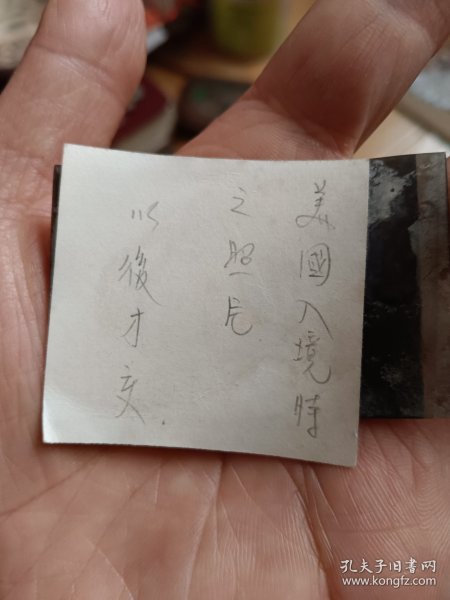 美國入境時
之照片
以後才交.
孔夫子旧书网
www.kongfz.com